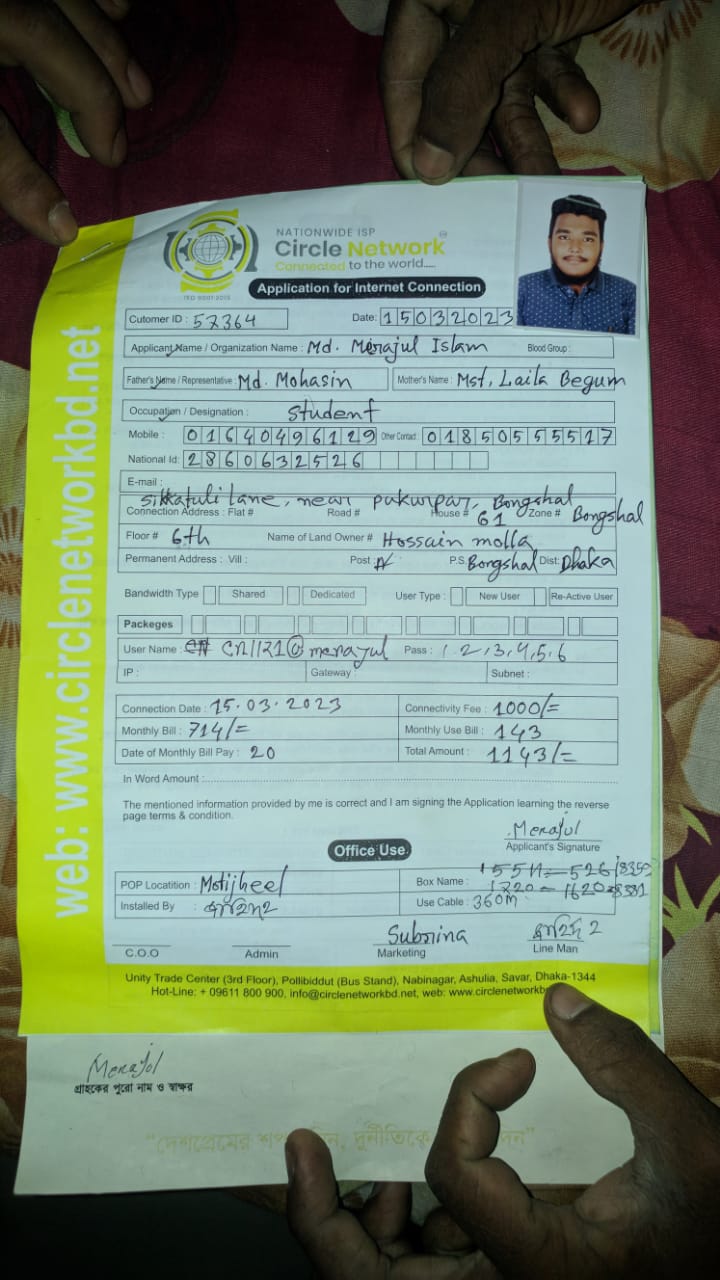 NATIONWIDE ISP
Circle Network
Connected to the world.....
ISO 9001:2015
Application for Internet Connection
Cutomer ID : 57364 Date: 15032023
Applicant Name / Organization Name : Md. Merajul Islam Blood Group :
Father's Name / Representative : Md. Mohasin Mother's Name : Mst. Laila Begum
Occupation / Designation : Student
Mobile : 01640496129 Other Contact : 01850555517
National Id: 2860632526
E-mail :
Sikkatuli lane, near pukurpar, Bongshal
Connection Address : Flat # Road # House # 61 Zone # Bongshal
Floor # 6th Name of Land Owner # Hossain molla
Permanent Address : Vill : Post : P.S. Bongshal Dist: Dhaka
Bandwidth Type Shared Dedicated User Type : New User Re-Active User
Packeges
User Name : CN1121@merajul Pass : 1.2,3,4,5,6
IP : Gateway : Subnet :
Connection Date : 15.03.2023 Connectivity Fee : 1000/=
Monthly Bill : 714/= Monthly Use Bill : 143
Date of Monthly Bill Pay : 20 Total Amount : 1143/=
In Word Amount :
The mentioned information provided by me is correct and I am signing the Application learning the reverse
page terms & condition.
Merajul
Applicant's Signature
Office Use.
POP Locatition : Motijheel Box Name :
Installed By : Use Cable : 360m
Subrina
C.O.O Admin Marketing Line Man
Unity Trade Center (3rd Floor), Pollibiddut (Bus Stand), Nabinagar, Ashulia, Savar, Dhaka-1344
Hot-Line: + 09611 800 900, info@circlenetworkbd.net, web: www.circlenetworkb
web: www.circlenetworkbd.net
Merajul
গ্রাহকের পুরো নাম ও স্বাক্ষর
"দেশপ্রেমের দুর্নীতিকে